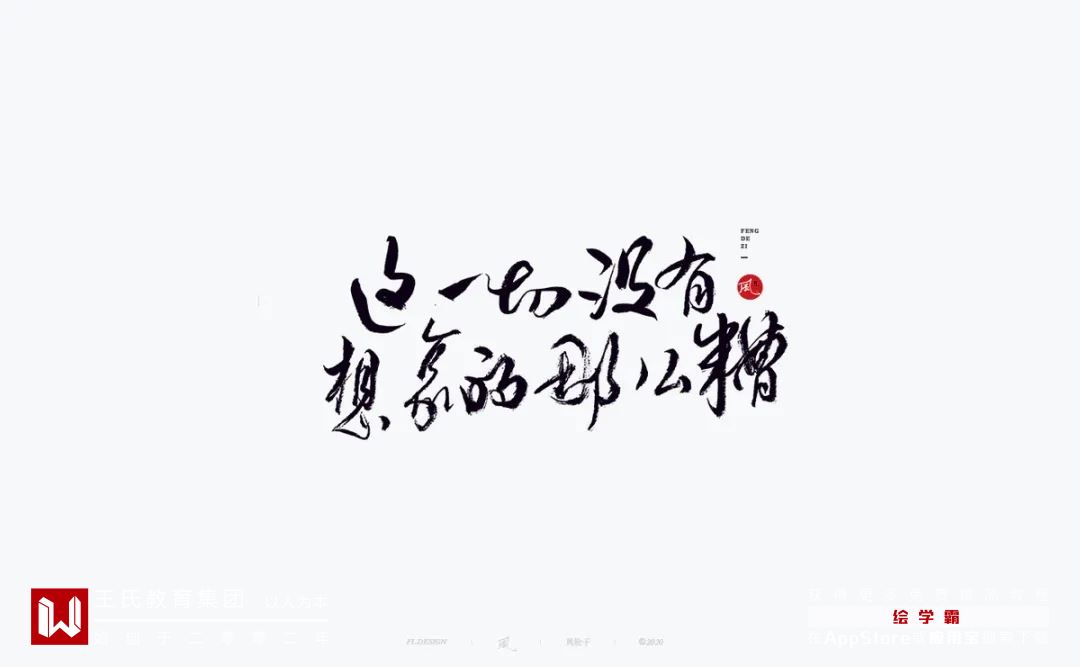 这一切没有
想象的那么糟
FENG
DE
ZI
風
王氏教育集团 以人为本
始创于二零零二年
FL.DESIGN 風 ©2020
获得更多免费精品教程
绘学霸
在AppStore或应用宝搜索下载